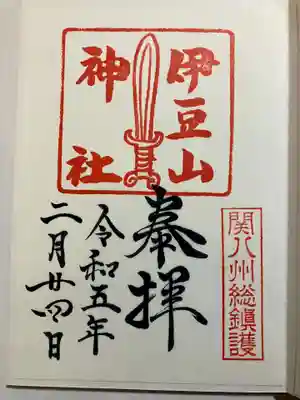 伊豆山
神社
奉拝
令和五年
二月廿四日
関八州総鎮護